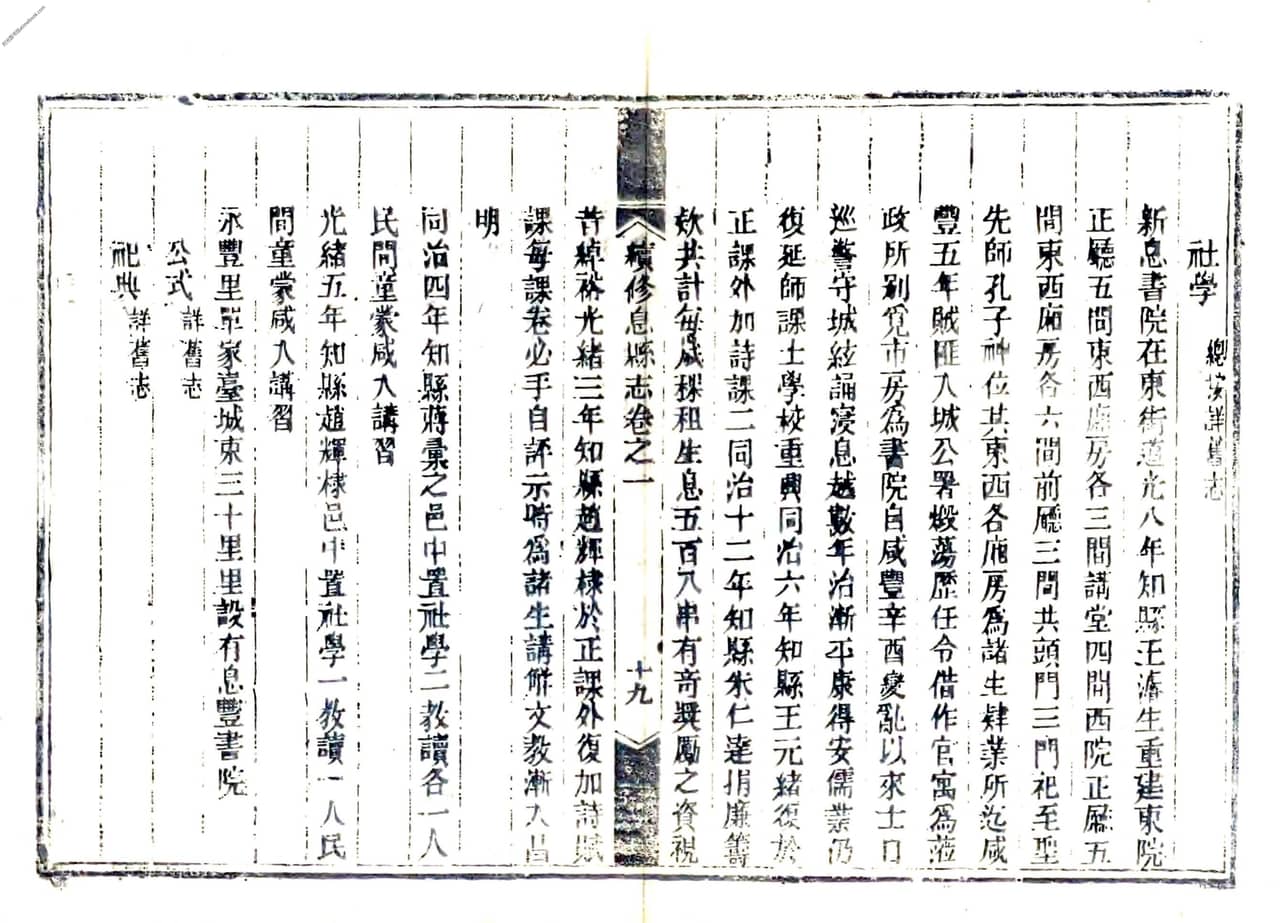 社學 總按詳舊志
新息書院在東街道光八年知縣王濬生重建東院
正廳五間東西廂房各三間講堂四間西院正廳五
間東西廂房各六間前廳三間共頭門三門祀至聖
先師孔子神位其東西各廂房爲諸生肄業所迄咸
豐五年賊匪入城公署燬蕩歷任令借作官寓爲蒞
政所别覓市房為書院自咸豐辛酉變亂以來士口
巡警守城絃誦寖息越數年治漸平康得安儒業仍
復延師課士學校重興同治六年知縣王元緒復於
正課外加詩課二同治十二年知縣朱仁達捐廉籌
欵共計每歲稞租生息五百八串有奇奬勵之資視
續修息縣志卷之一
十九
昔綽裕光緒三年知縣趙輝棣於正課外復加詩賦
課每課卷必手自評示時爲諸生講解文教漸入昌
明
同治四年知縣蔣彙之邑中置社學二教讀各一人
民間童蒙咸入講習
光緒五年知縣趙輝棣邑中置社學一教讀一人民
間童蒙咸入講習
永豐里單家臺城東三十里里設有息豐書院
公式 詳舊志
祀典 詳舊志